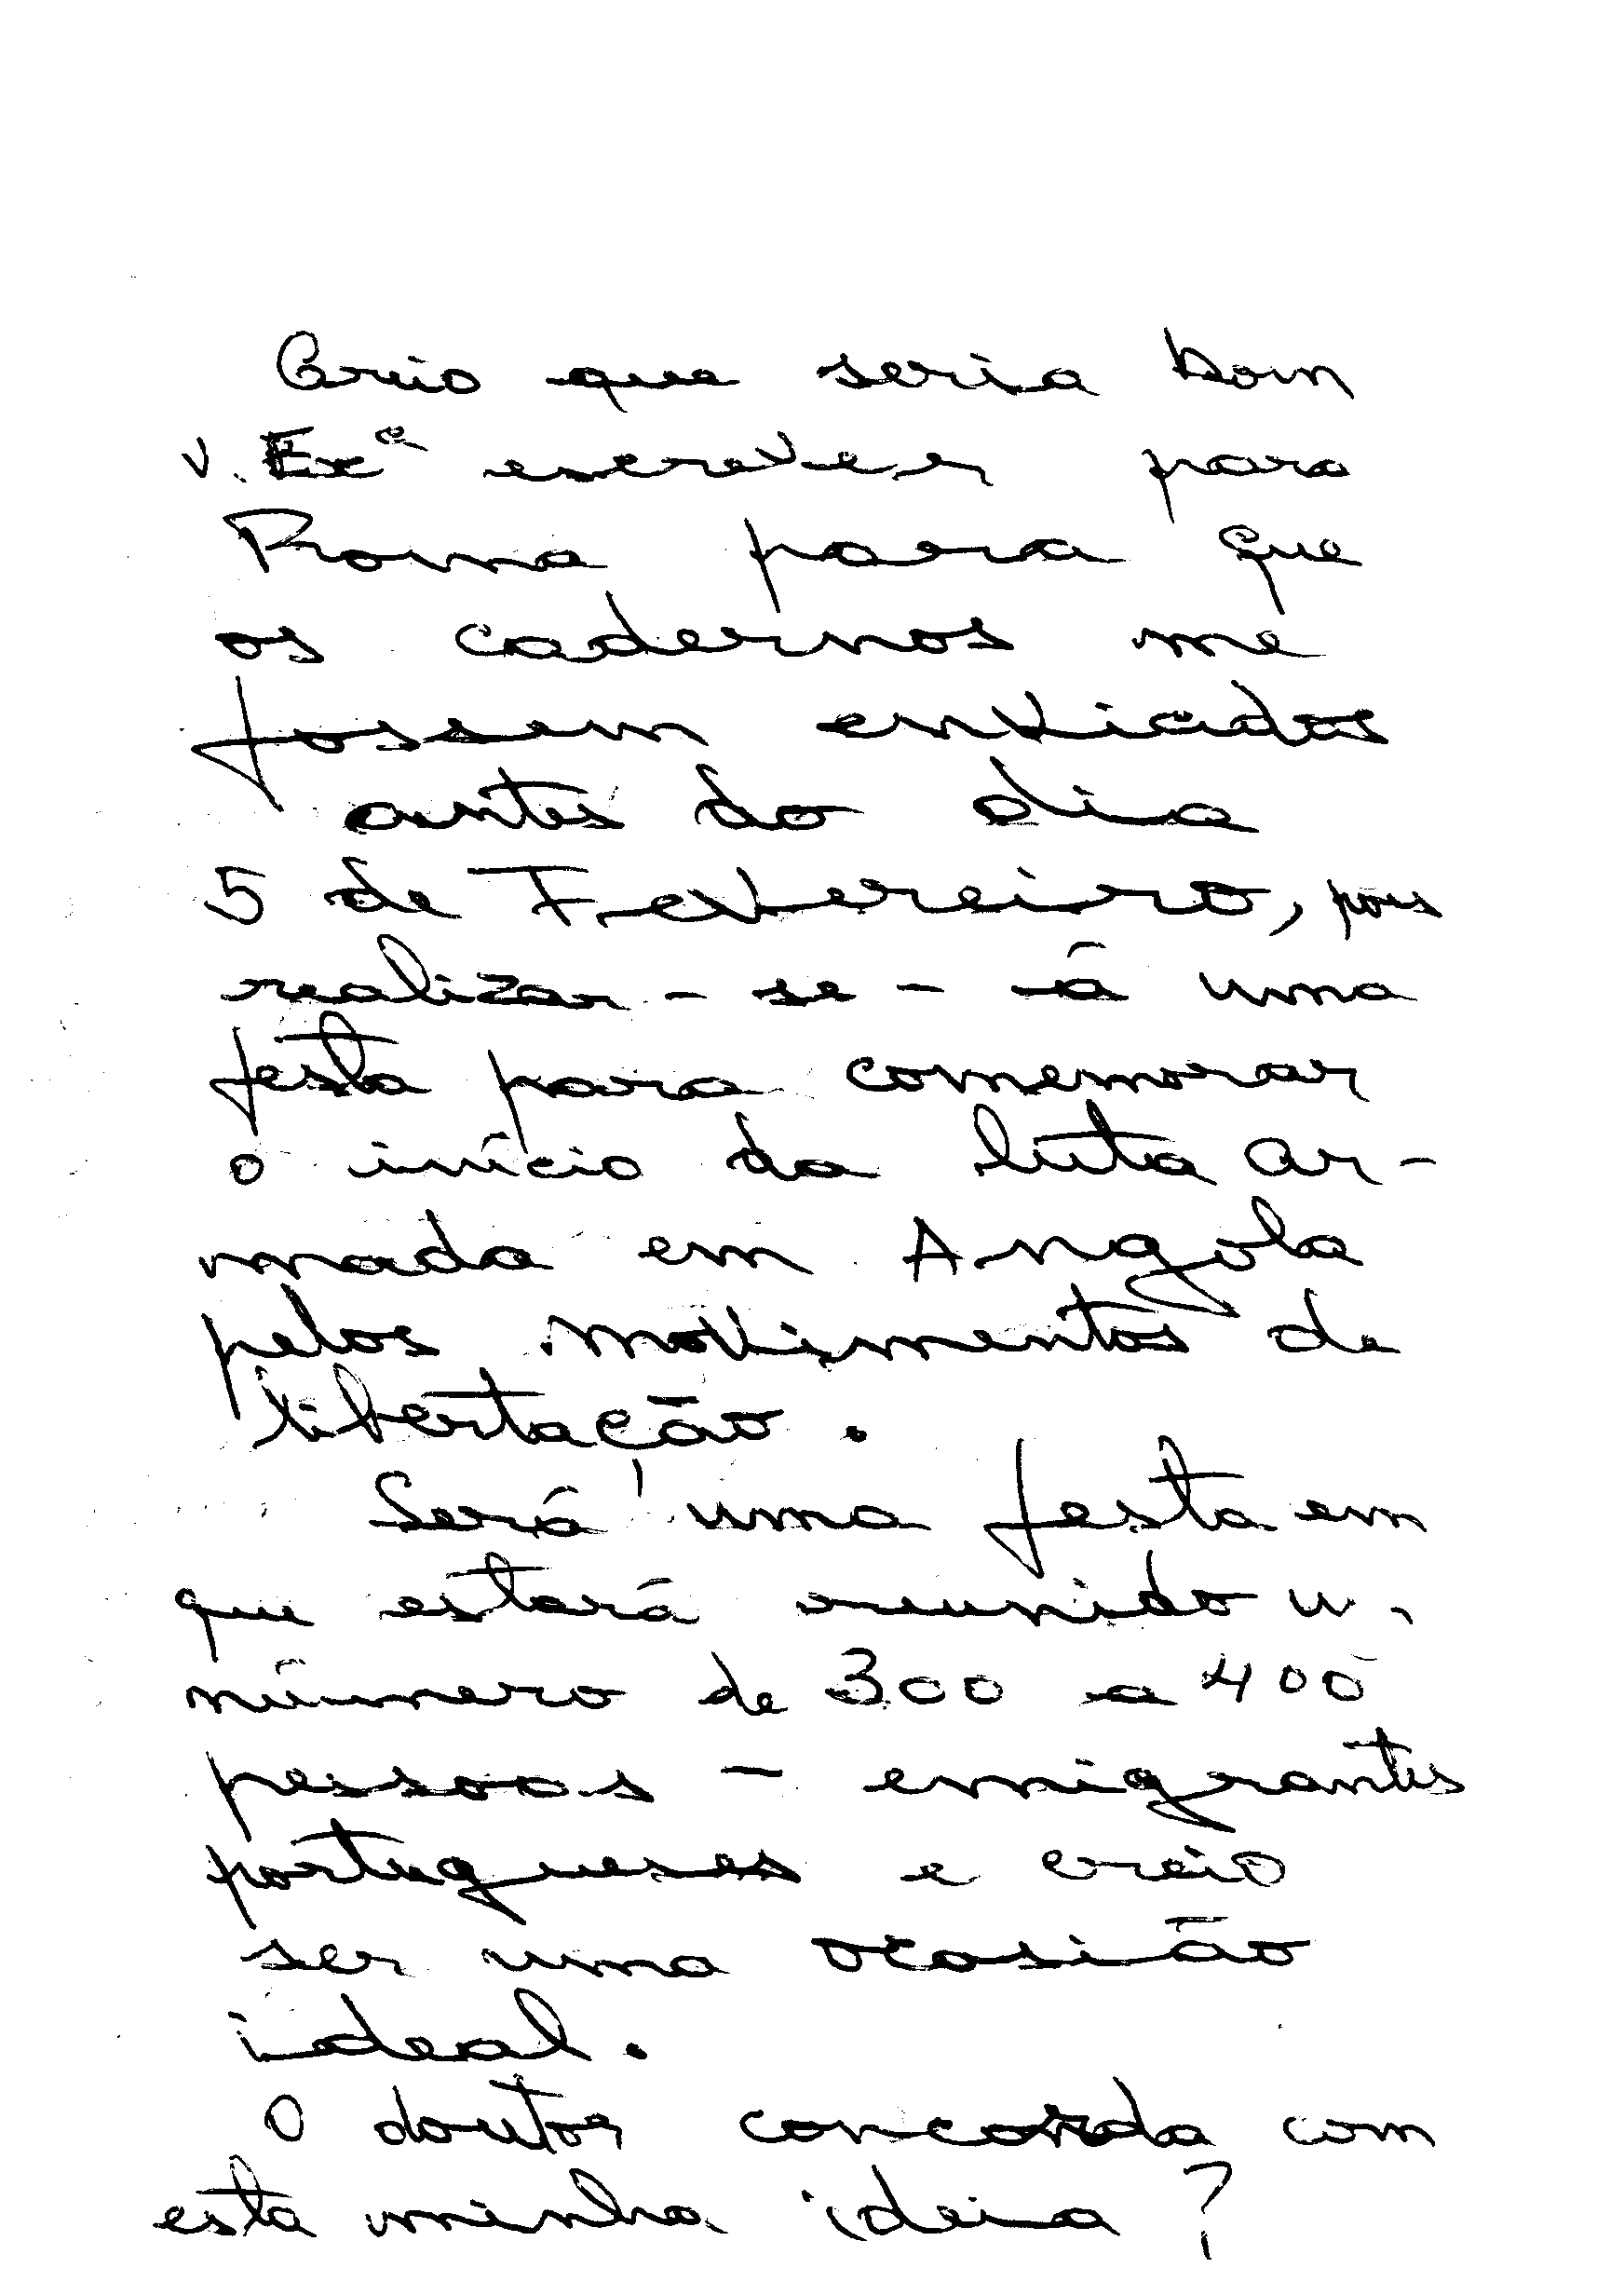 Creio que seria bom
v. Exª escrever para
Roma para que
os cadernos me
fossem enviados
antes do dia
5 de Fevereiro, pois
realizar-se-á uma
festa para comemorar
o início da luta ar-
mada em Angola
pelos movimentos de
libertação.
Será uma festa em
que estará reunido
número de 300 a 400
pessoas - emigrantes
portugueses e creio
ser uma ocasião
ideal.
O doutor concorda com
esta minha ideia?